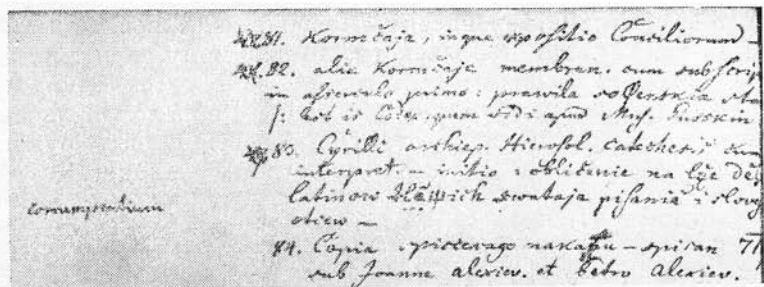 81. Kormčaja, inque expositio Conciliorum –
82. alia Kormčaja membran. cum subscrip
in primo: prawila
/: est is Codex quem vidi apud Mus. Pusskin
83. Cyrilli archiep. Hierosol. catechesis cum
interpret. – initio: obličenie na lže
latinow swataja pisania i slov
otiew –
corrumpentium
84. Copia spisan 71
sub Joanne Alexiev. et Petro Alexiev.